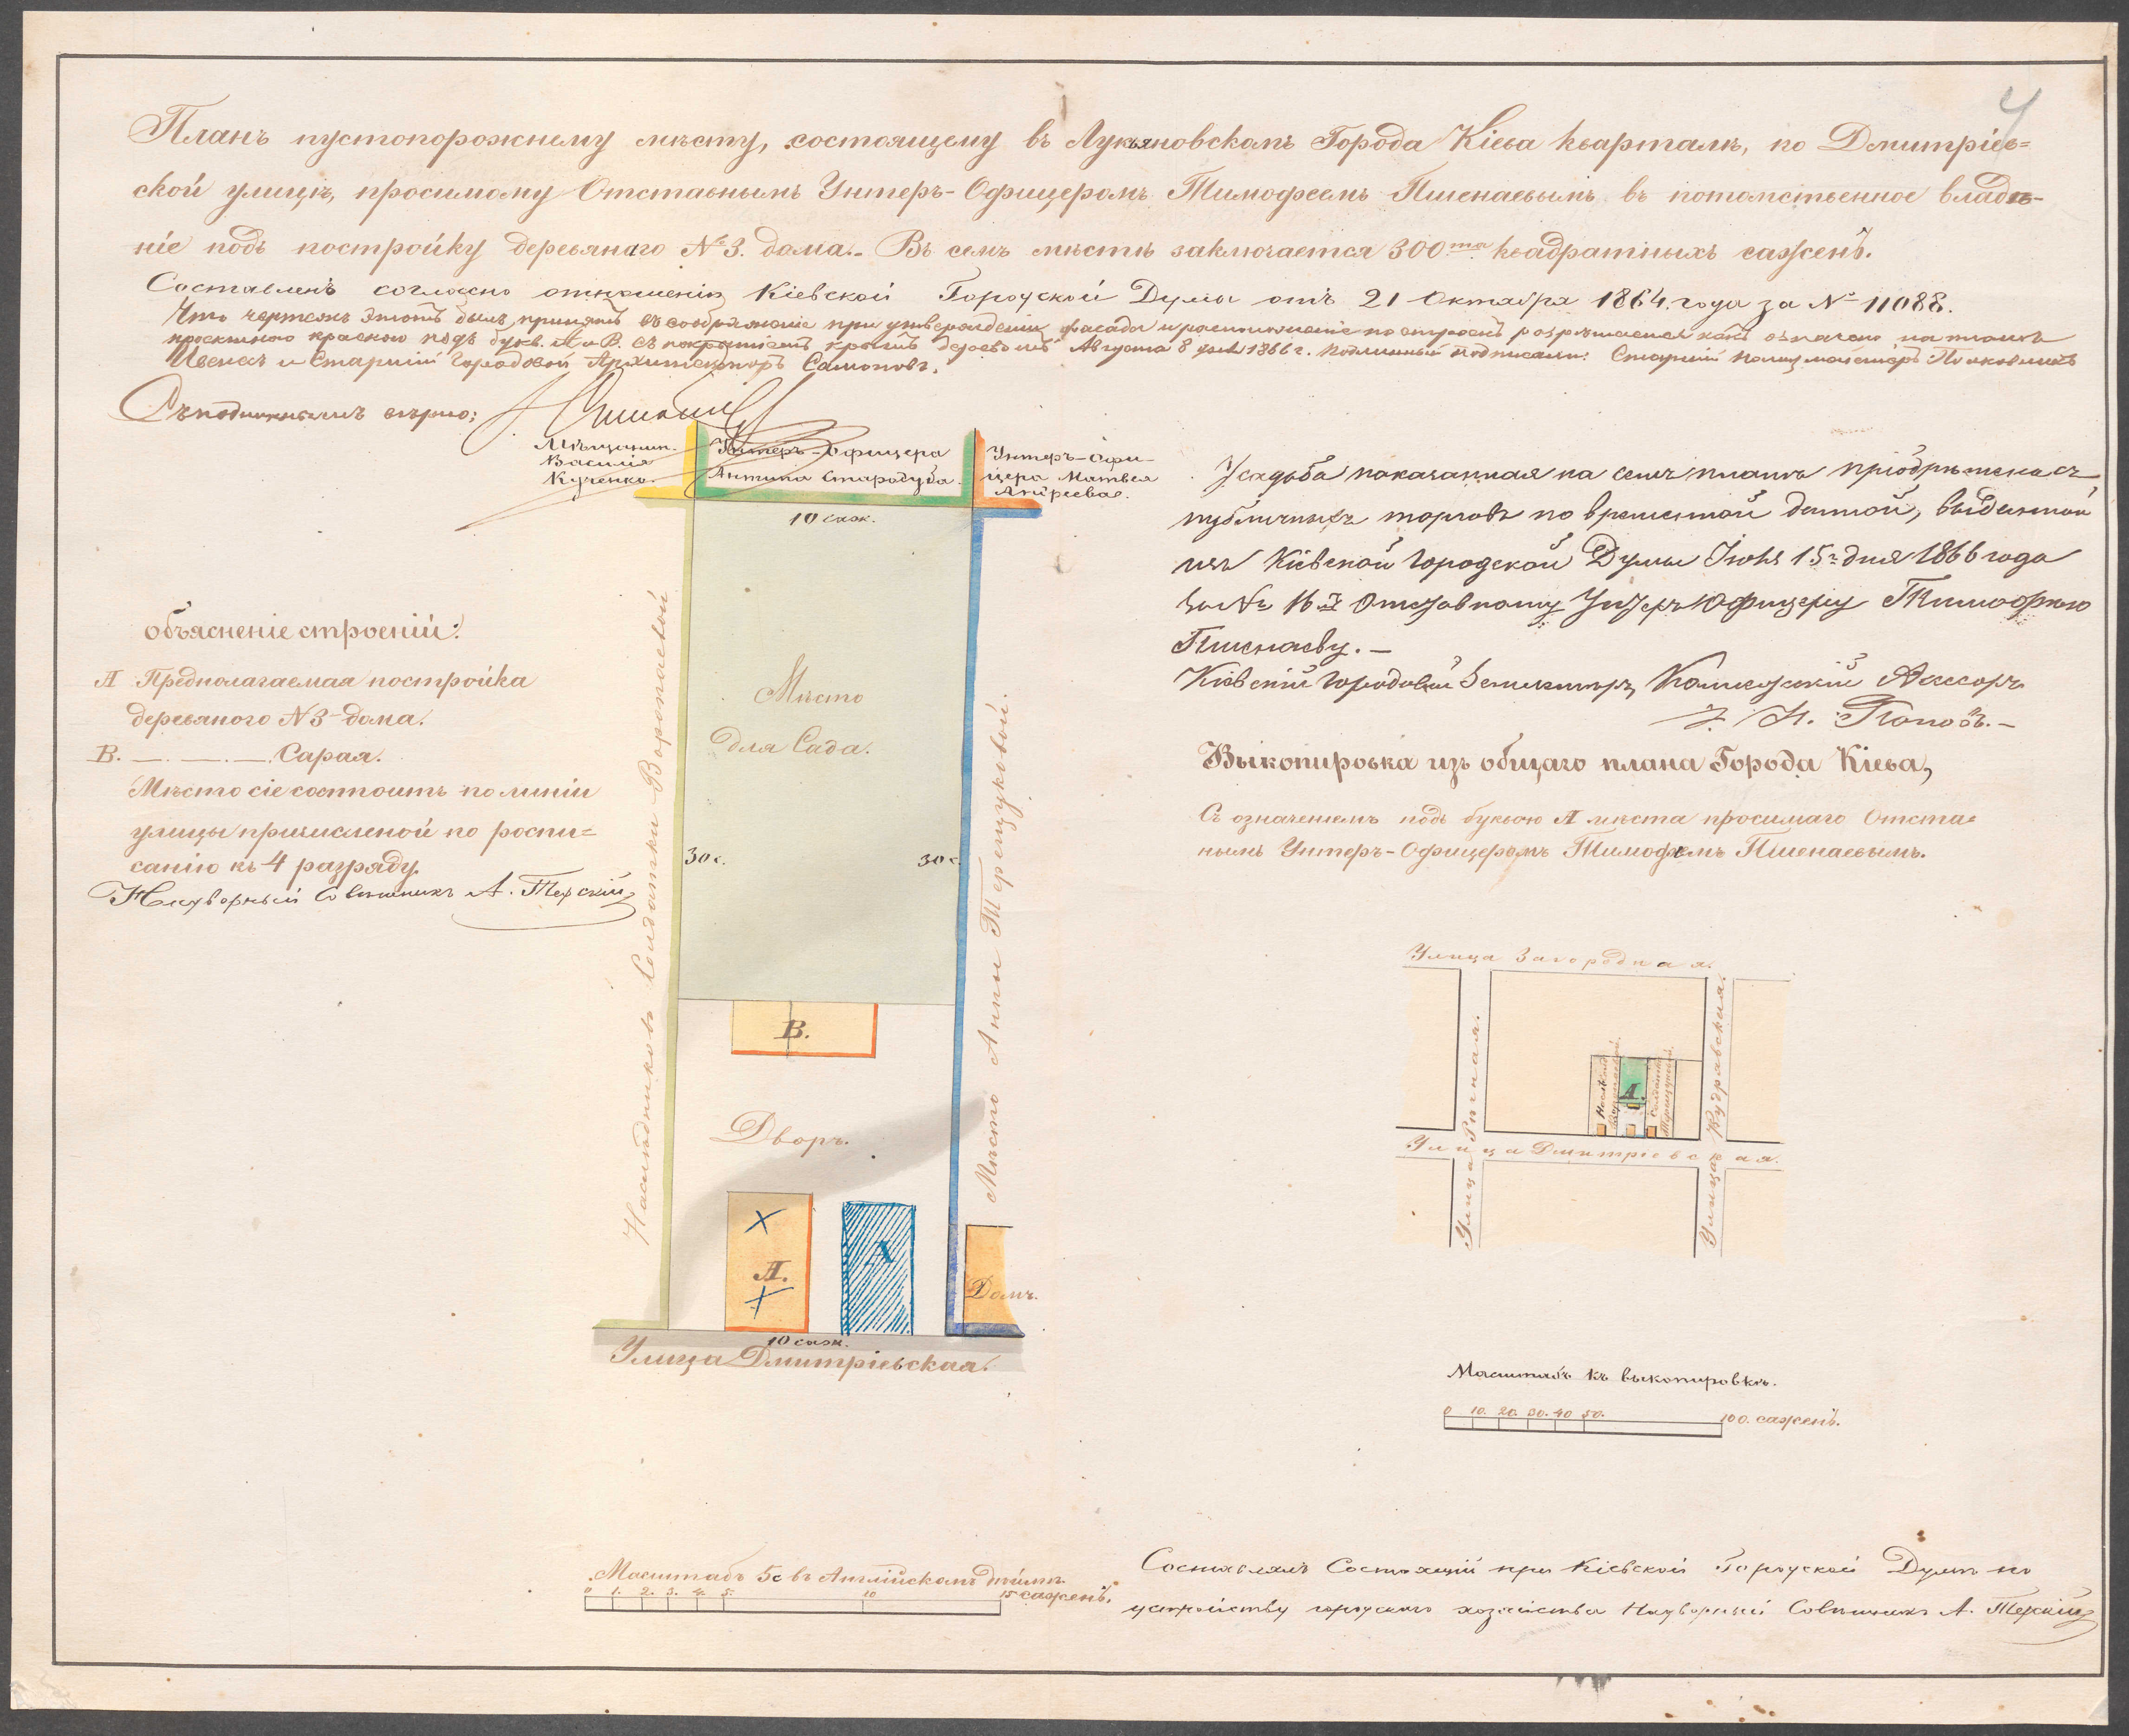 4
Планъ пустопорожнему мѣсту, состоящему въ Лукьяновскомъ Города Кіева кварталѣ, по Дмитріев=
ской улицѣ, просимому Отставнымъ Унтеръ-Офицеромъ Тимофеемъ Пшенаевымъ въ потомственное владѣ-
ніе подъ постройку деревянаго №3. дома.- Въ семъ мѣстѣ заключается 300та квадратныхъ саженъ.
Составленъ согласно отношенія Кіевской Городской Думы отъ 21 Октября 1864. года за № 11088.
Что чертежъ этотъ былъ принятъ въ соображеніе при утвержденіи фасада и расположеніе построекъ разрѣшается какъ означено на планѣ
проектною краскою подъ букв. А и В. съ покрытіемъ крышъ деревомъ Августа 8 дня 1866 г. Подлинный подписали: Старшій Полицмейстеръ Полковникъ
Ивенсъ и Старшій Городовой Архитекторъ Самоновъ.
Съ подлиннымъ вѣрно:
Мѣщанин.
Василія
Кученко.
Унтеръ-Офицера
Антипа Стародуба.
Унтеръ-Офи-
цера Матвея
Андреева.
10 саж.
Усадьба показанная на семъ планѣ пріобрѣтена съ
публичныхъ торговъ по временной данной, выданной
изъ Кіевской Городской Думы Іюня 15го дня 1866 года
за № 16м Отставному Унтеръ Офицеру Тимофѣю
Пшенаеву.-
Кіевскій Городовой Землемѣръ, Коллежскій Ассесоръ
Поповъ.-
объясненіе строеній:
А Предполагаемая постройка
деревяного №3 дома.
В. —. —. —. Сарая.
Мѣсто сіе состоитъ по линіи
улицы причисленой по роспи=
санію къ 4 разряду.
Надворный Совѣтникъ А. Терскій
Мѣсто
для Сада.
30 с.
30 с
Наслѣдниковъ Солдатки Воропаевой
Мѣсто Анны Терещуковой.
В.
Дворъ.
А.
А
Домъ.
10 саж.
Улица Дмитріевская.
Выкопировка изъ общаго плана Города Кіева,
Съ означеніемъ подъ буквою А мѣста просимаго Отста=
нымъ Унтеръ-Офицеромъ Тимофѣемъ Пшенаевымъ.
Улица Загородная.
Улица Рѣпная.
Улица Кудрявская.
А.
Улица Дмитріевская.
Масштабъ къ выкопировкѣ.
0 10. 20. 30. 40 50. 100. саженъ.
Масштабъ 5с въ Англійскомъ дюймѣ.
0 1. 2. 3. 4. 5. 10 15 саженъ.
Составлялъ Состоящій при Кіевской Городской Думѣ по
устройству городскаго хозяйства Надворный Совѣтникъ А. Терскій